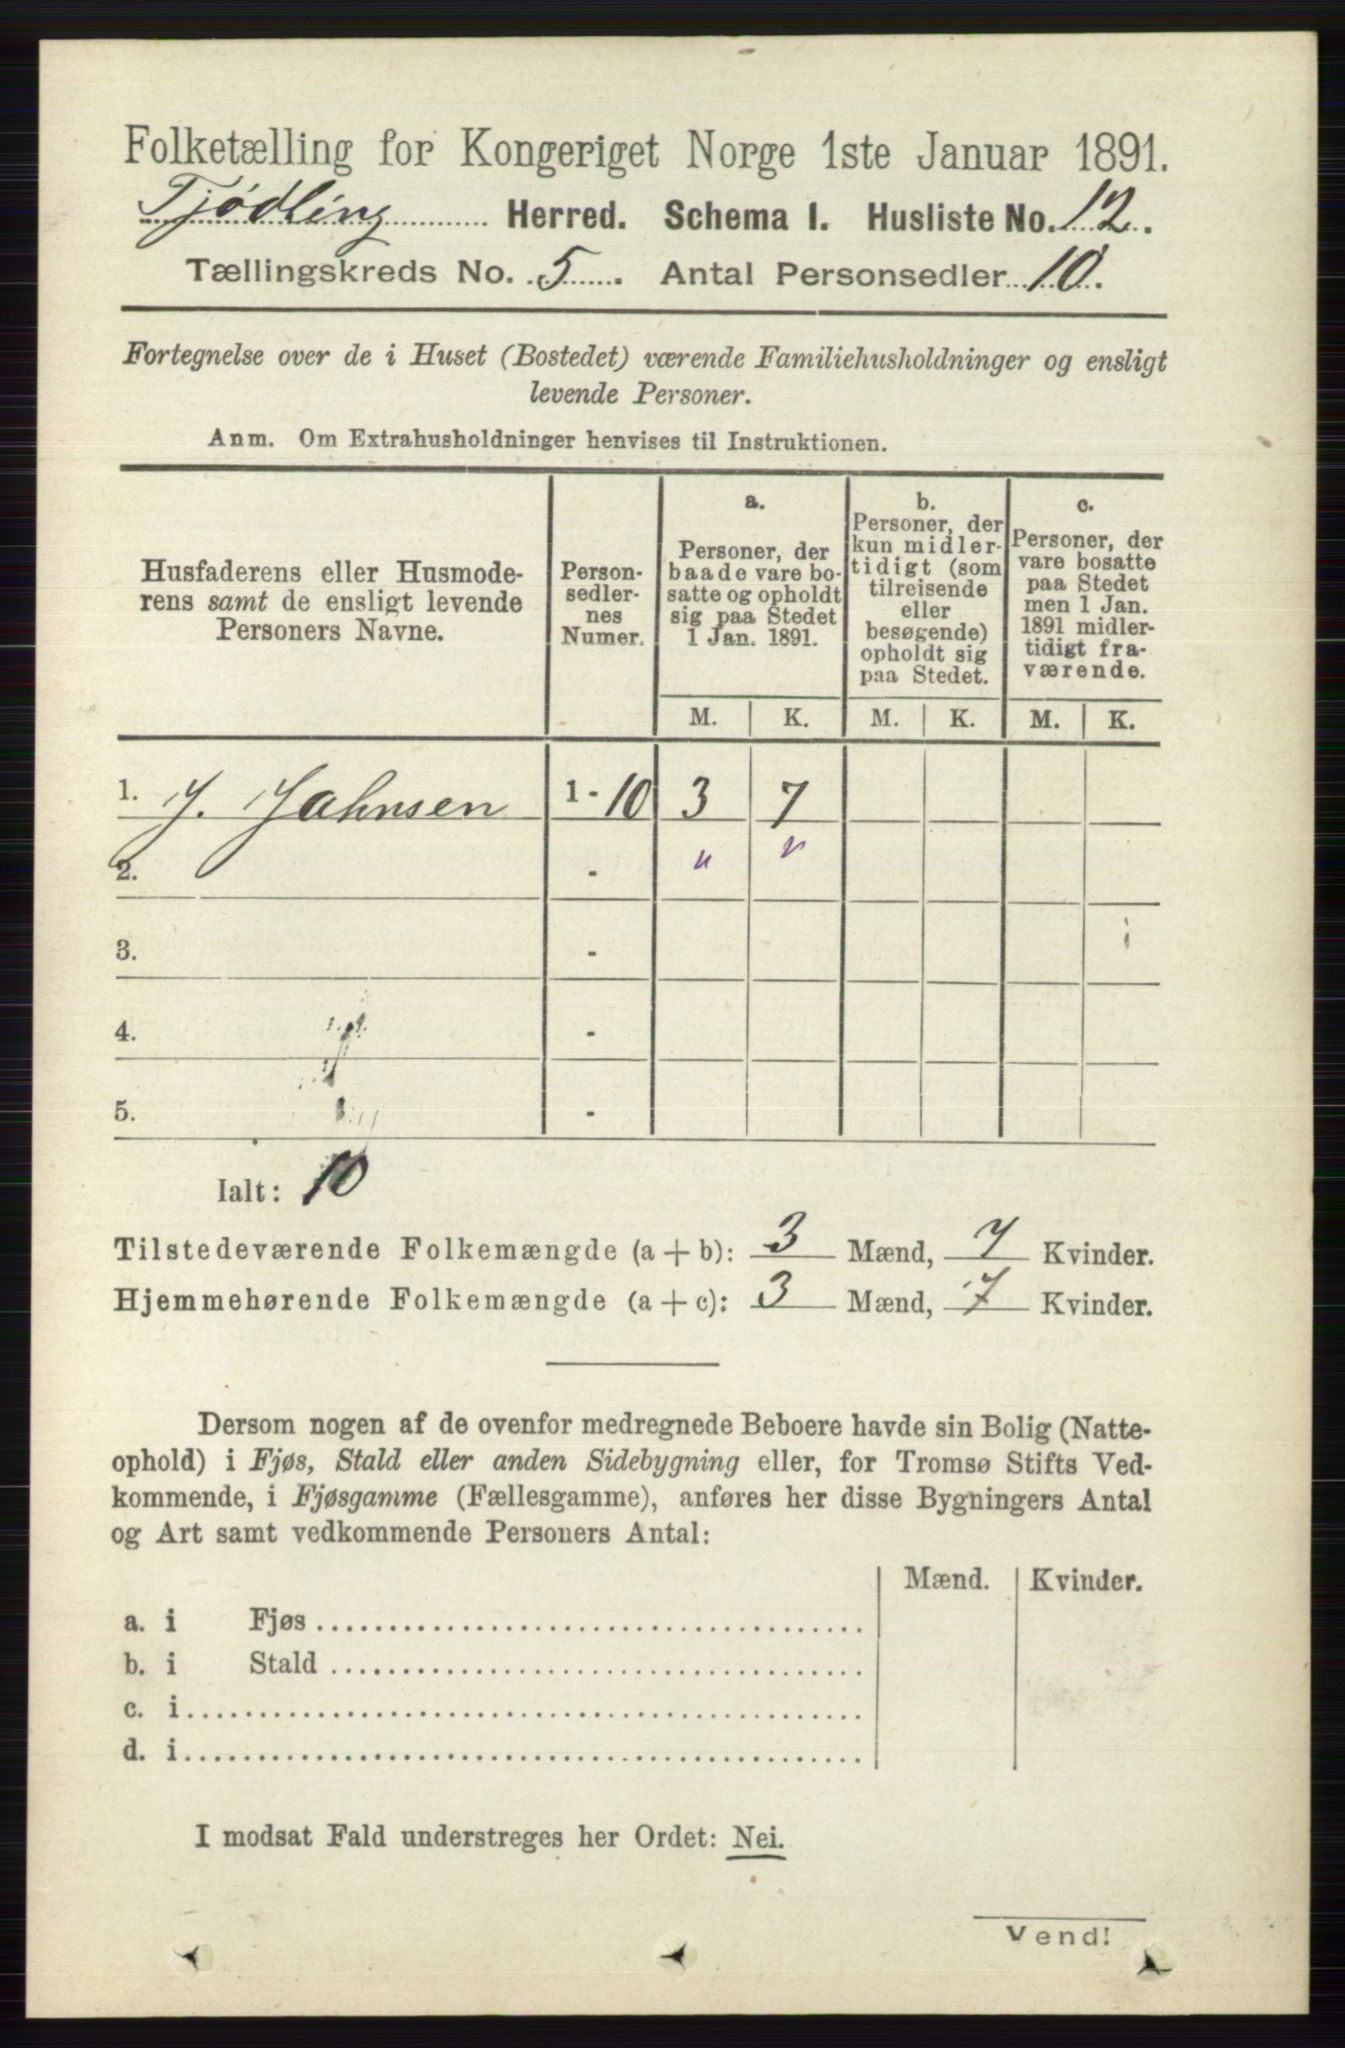 Folketælling for Kongeriget Norge 1ste Januar 1891.
Tjødling Herred. Schema I. Husliste No. 12.
Tællingskreds No. 5. Antal Personsedler 10.
Fortegnelse over de i Huset (Bostedet) værende Familiehusholdninger og ensligt
levende Personer.
Anm. Om Extrahusholdninger henvises til Instruktionen.
Husfaderens eller Husmode-
rens samt de ensligt levende
Personers Navne.
Person-
sedler-
nes
Numer.
a.
Personer, der
baade vare bo-
satte og opholdt
sig paa Stedet
1 Jan. 1891.
b.
Personer, der
kun midler-
tidigt (som
tilreisende
eller
besøgende)
opholdt sig
paa Stedet.
c.
Personer, der
vare bosatte
paa Stedet
men 1 Jan.
1891 midler-
tidigt fra-
værende.
M. K. M. K. M. K.
1. J. Jahnsen 1 - 10 3 7
2. - " "
3. -
4. -
5. -
Ialt: 10
Tilstedeværende Folkemængde (a + b): 3 Mænd, 7 Kvinder.
Hjemmehørende Folkemængde (a + c): 3 Mænd, 7 Kvinder.
Dersom nogen af de ovenfor medregnede Beboere havde sin Bolig (Natte-
ophold) i Fjøs, Stald eller anden Sidebygning eller, for Tromsø Stifts Ved-
kommende, i Fjøsgamme (Fællesgamme), anføres her disse Bygningers Antal
og Art samt vedkommende Personers Antal:
Mænd. Kvinder.
a. i Fjøs
b. i Stald
c. i
d. i
I modsat Fald understreges her Ordet: Nei.
Vend!